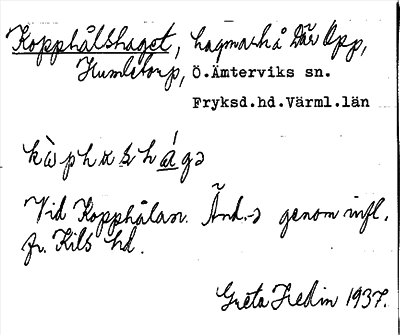 Kopphålshaget, hagmark å Där Opp,
Humletorp, Ö.Ämterviks sn.
Fryksd.hd.Värml.län
kòphɷshágə
Vid Kopphålan. Änd.-ə genom infl.
fr. Kils hd.
Greta Hedin 1937.